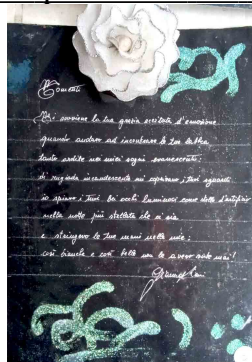 Momenti
Mi sovviene la tua grazia eccitata d'emozione
quando andavo ad incontrare le tue labbra
tanto ardite nei miei sogni evanescenti:
di rugiada incandescente mi coprivano i tuoi sguardi
io spiavo i tuoi occhi luminosi come
nella notte più stellata che ci sia
e stringevo le tue mani nelle mie:
così bianche e così belle non le avevo viste mai!